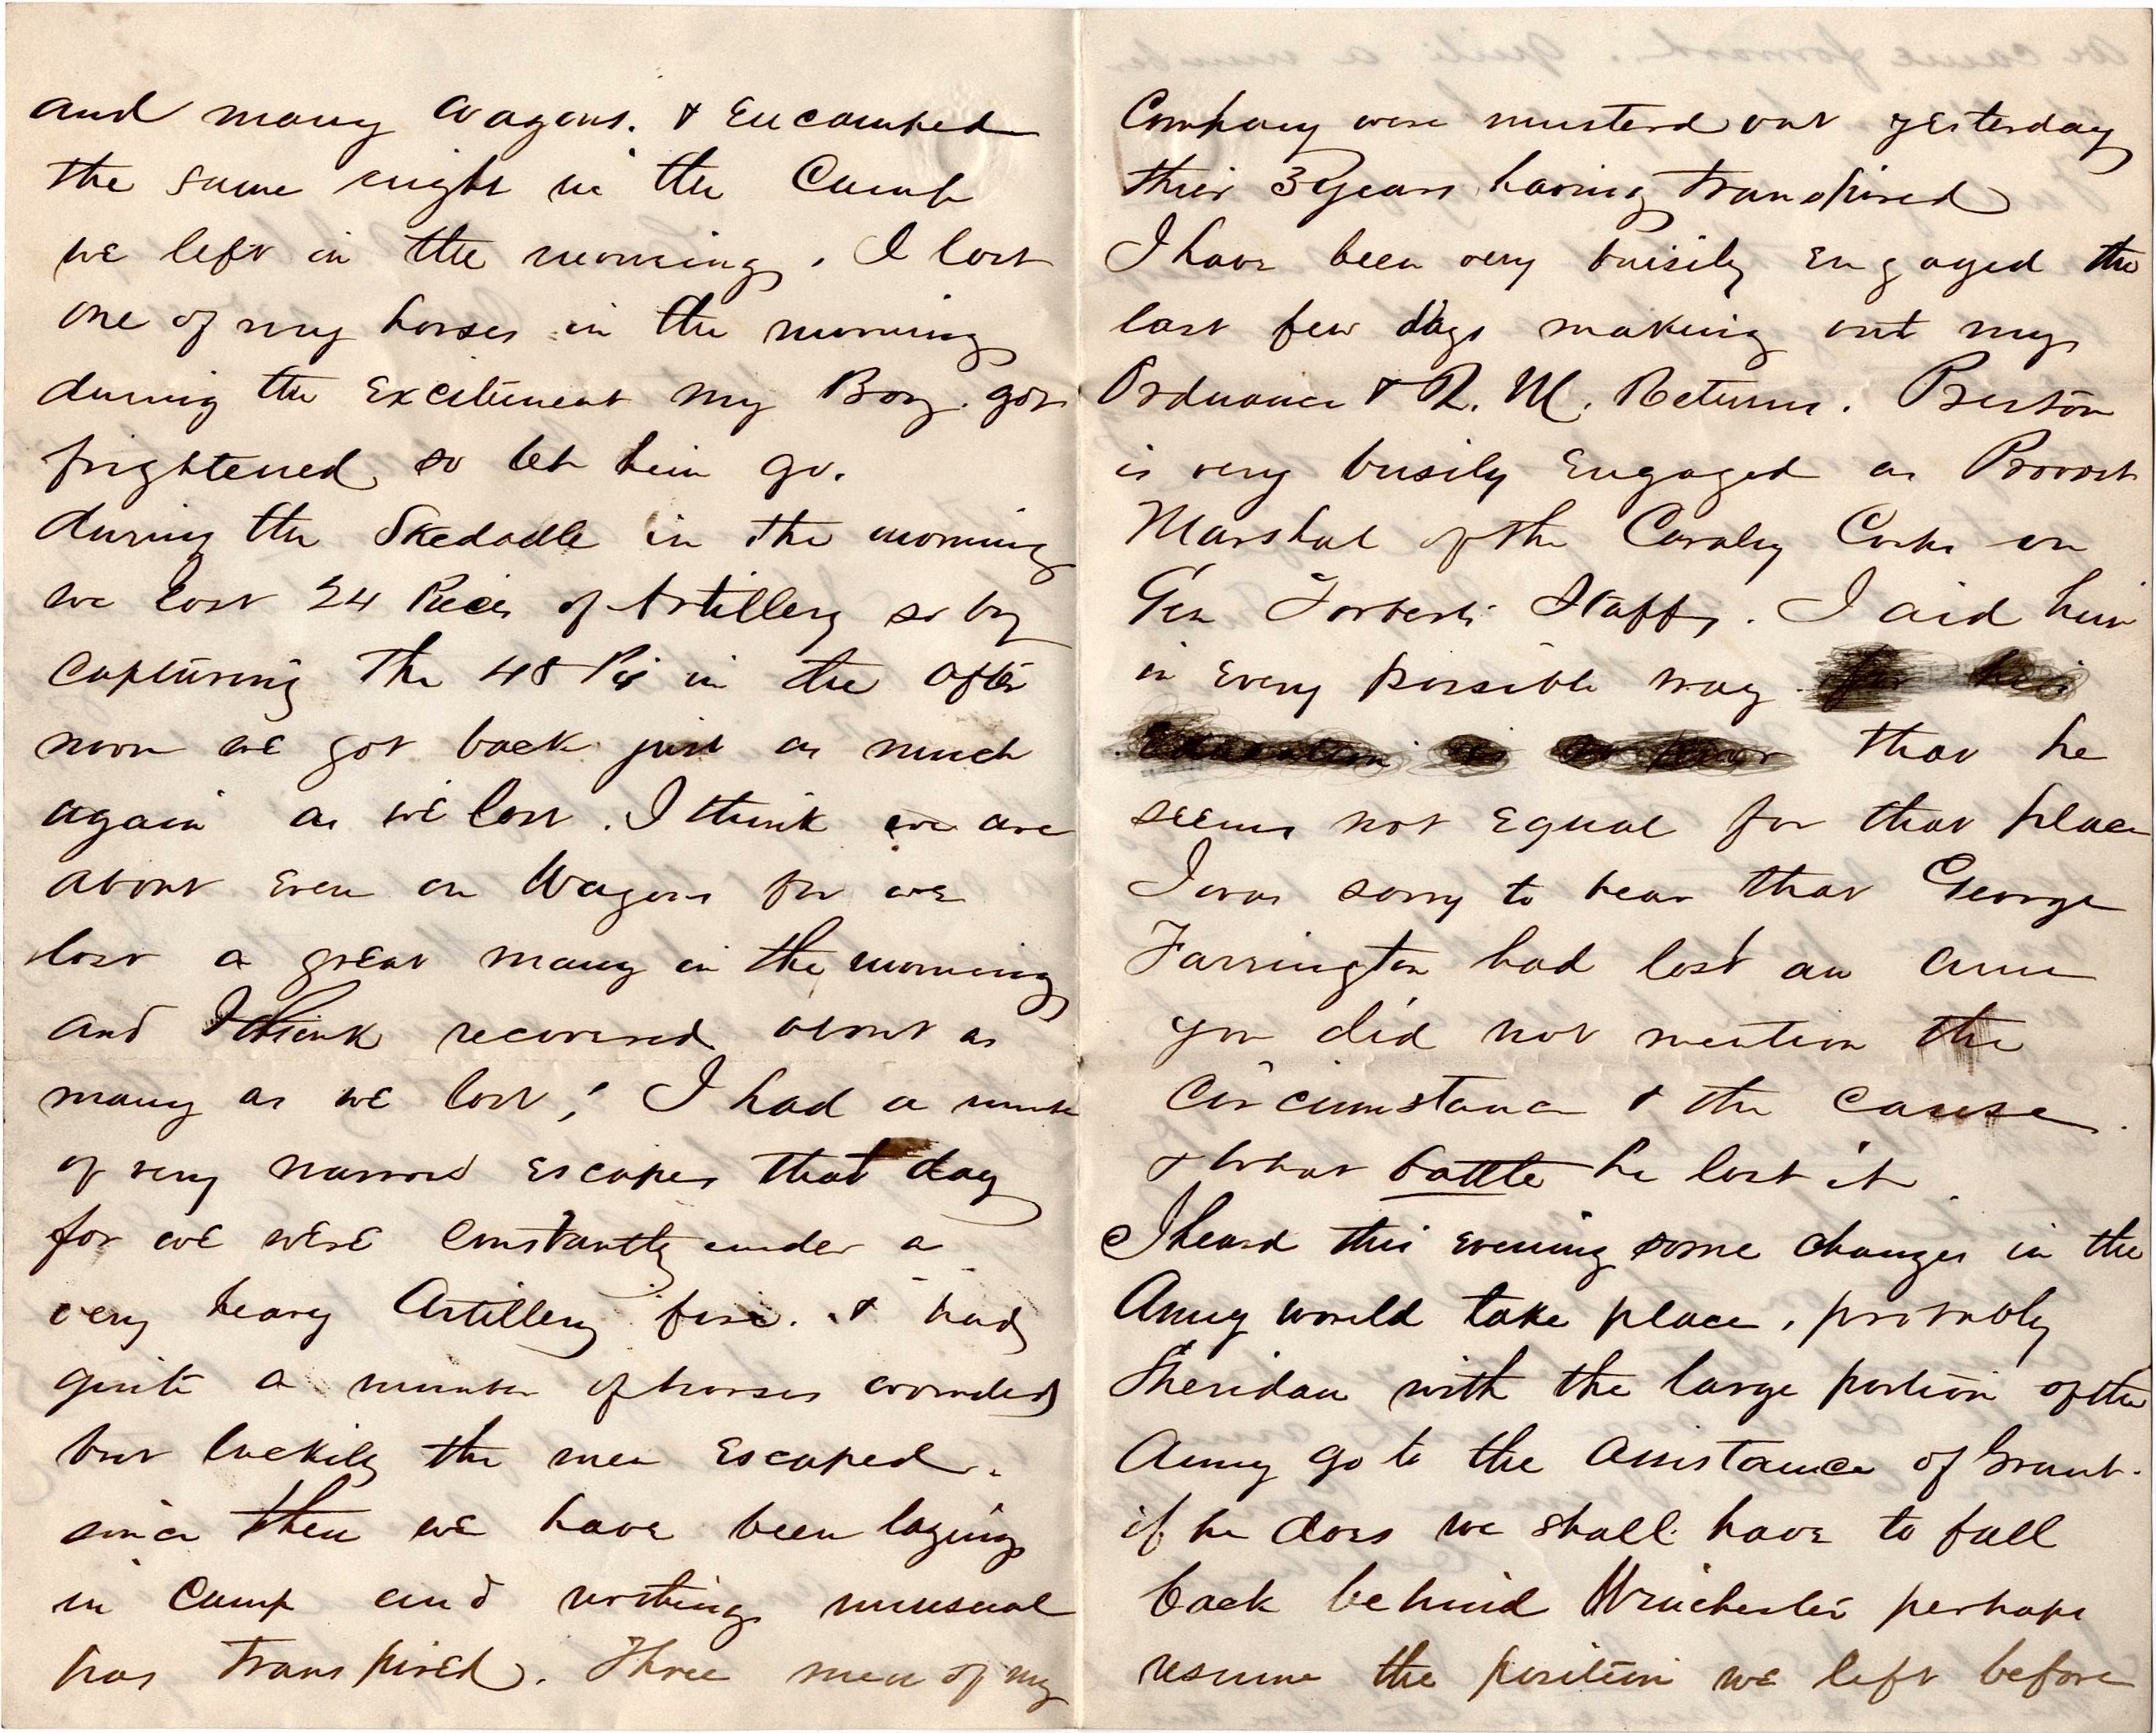 and many Wagons. & Encamped
the same night in the Camp
we left in the morning, I lost
one of my horses in the morning
during the Excitement my Boy. got
frightened so let him go.
during the Skedadle in the morning
we lost 24 Pieces of Artillery so by
capturing the 48 Ps in the after
noon we got back just as much
again as we lost. I think we are
about Even on Wagons for we
lost a great many in the morning
and I think recovered about as
many as we lost; I had a
of very narrow Escapes that day
for we were constantly under a
very heavy Artillery fire. & had
quite a number of horses wounded
but luckily the men Escaped.
since then we have been laying
in camp and nothing unusual
has transpired. Three men of my
Company were musterd out yesterday
their 3 years having transpired
I have been very buisily Engaged the
last few days making out my
Ordnance & Q. M. Returns. Preston
is very busily Engaged as Provost
Marshal of the Cavalry Corps on
Gen Torberts Staff. I aid him
in Every possible way for his
that he
seems not Equal for that place
I was sorry to hear that George
Farrington had lost an arm
you did not mention the
circumstance & the cause.
& what battle he lost it.
I heard this Evening some changes in the
Army would take place, probably
Sheridan with the large portion of the
Army go to the assistance of Grant.
if he does we shall have to fall
back behind Winchester perhaps
resume the position we left before